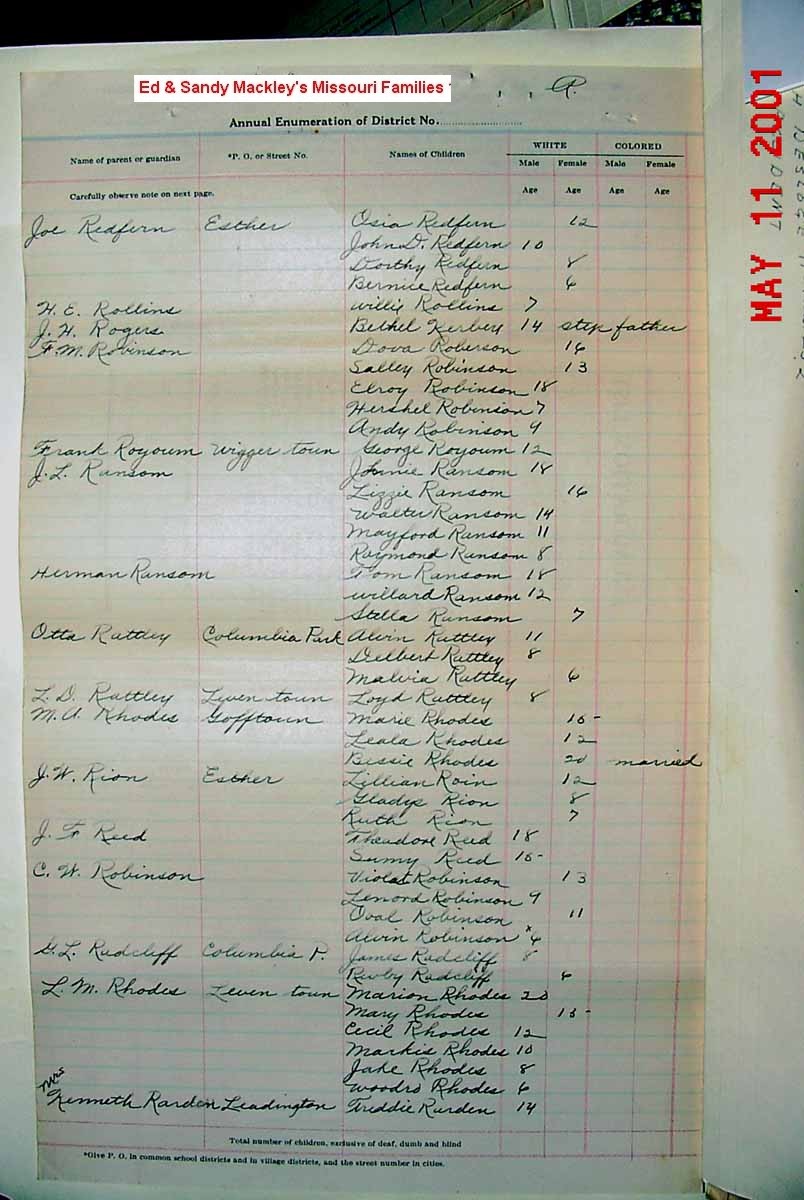 Ed & Sandy Mackley's Missouri Families
R.
Annual Enumeration of District No.
WHITE COLORED
Name of parent or guardian *P. O. or Street No. Names of Children Male Female Male Female
Carefully observe note on next page. Age Age Age Age
Joe Redfern Esther Osia Redfern 12
John D. Redfern 10
Dorthy Redfern 8
Bernice Redfern 6
H. E. Rollins Willie Rollins 7
J. H. Rogers Bethel Kerbey 14 step father
F. M. Robinson Dova Roberson 16
Salley Robinson 13
Elroy Robinson 18
Hershel Robinson 7
Andy Robinson 9
Frank Royoum Wigger town George Royoum 12
J. L. Ransom Johnie Ransom 18
Lizzie Ransom 16
Walter Ransom 14
Mayford Ransom 11
Raymond Ransom 8
Herman Ransom Tom Ransom 18
Willard Ransom 12
Stella Ransom 7
Otta Rattley Columbia Park Alvin Rattley 11
Delbert Rattley 8
Malvia Rattley 6
L. D. Rattley Leven town Loyd Rattley 8
M. A. Rhodes Gofftown Marie Rhodes 15
Leala Rhodes 12
Bessie Rhodes 20 married
J. W. Rion Esther Lillian Roin 12
Gladys Rion 8
Ruth Rion 7
J. F. Reed Theodore Reed 18
Sumy Reed 15
C. W. Robinson Violat Robinson 13
Lenord Robinson 9
Oval Robinson 11
Alvin Robinson *6
G. L. Radcliff Columbia P. James Radcliff 8
Rewby Radcliff 6
L. M. Rhodes Leven town Marion Rhodes 20
Mary Rhodes 15
Cecil Rhodes 12
Markis Rhodes 10
Jake Rhodes 8
Woodro Rhodes 6
Mrs
Kenneth Rarden Leadington Freddie Rurden 14
Total number of children, exclusive of deaf, dumb and blind
*Give P. O. in common school districts and in village districts, and the street number in cities.
MAY 11 2001